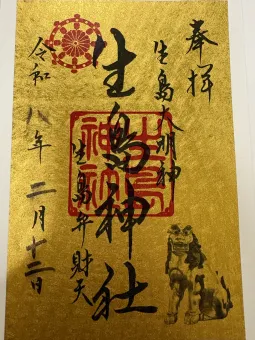 奉拝
生島大明神
生島神社
生島弁財天
令和八年二月十二日
生島神社